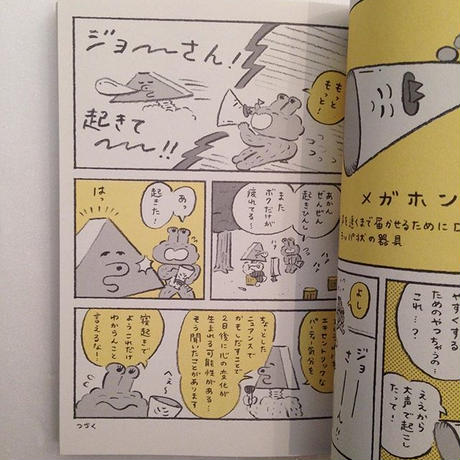 ジョ〜〜さん!
起きて
〜〜〜!!
もっと
もっと!
あかん
ぜんぜん
起きひんし
また
ボクだけが
疲れてる…
あっ
起きた!
はっ
エキセントリックな
パーティー気分を
ちょっとした
ニュアンスで
かもしだすことで
2日後に心の変化が
生まれる可能性がある…
そう聞いたことがあります
へぇ〜
寝起きで
ようこれだけ
わからんこと
言えるな〜
つづく
メガホン
遠くまで届かせるために
ラッパ状の器具
やすくする
ためのやつちゃうの…
これ…?
よし
ジョ
さ
ン!!
ええから
大声で起こし
たって!